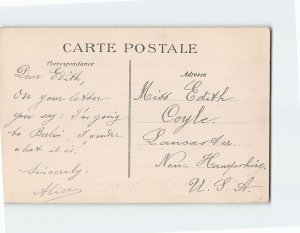 CARTE POSTALE
Correspondance
Adresse
Dear Edith,
On your letter
you say: I'm going
to Berlin. I wonder
what it is?
Sincerely,
Alice
Miss Edith
Coyle.
Lancaster
New Hampshire.
U. S. A.